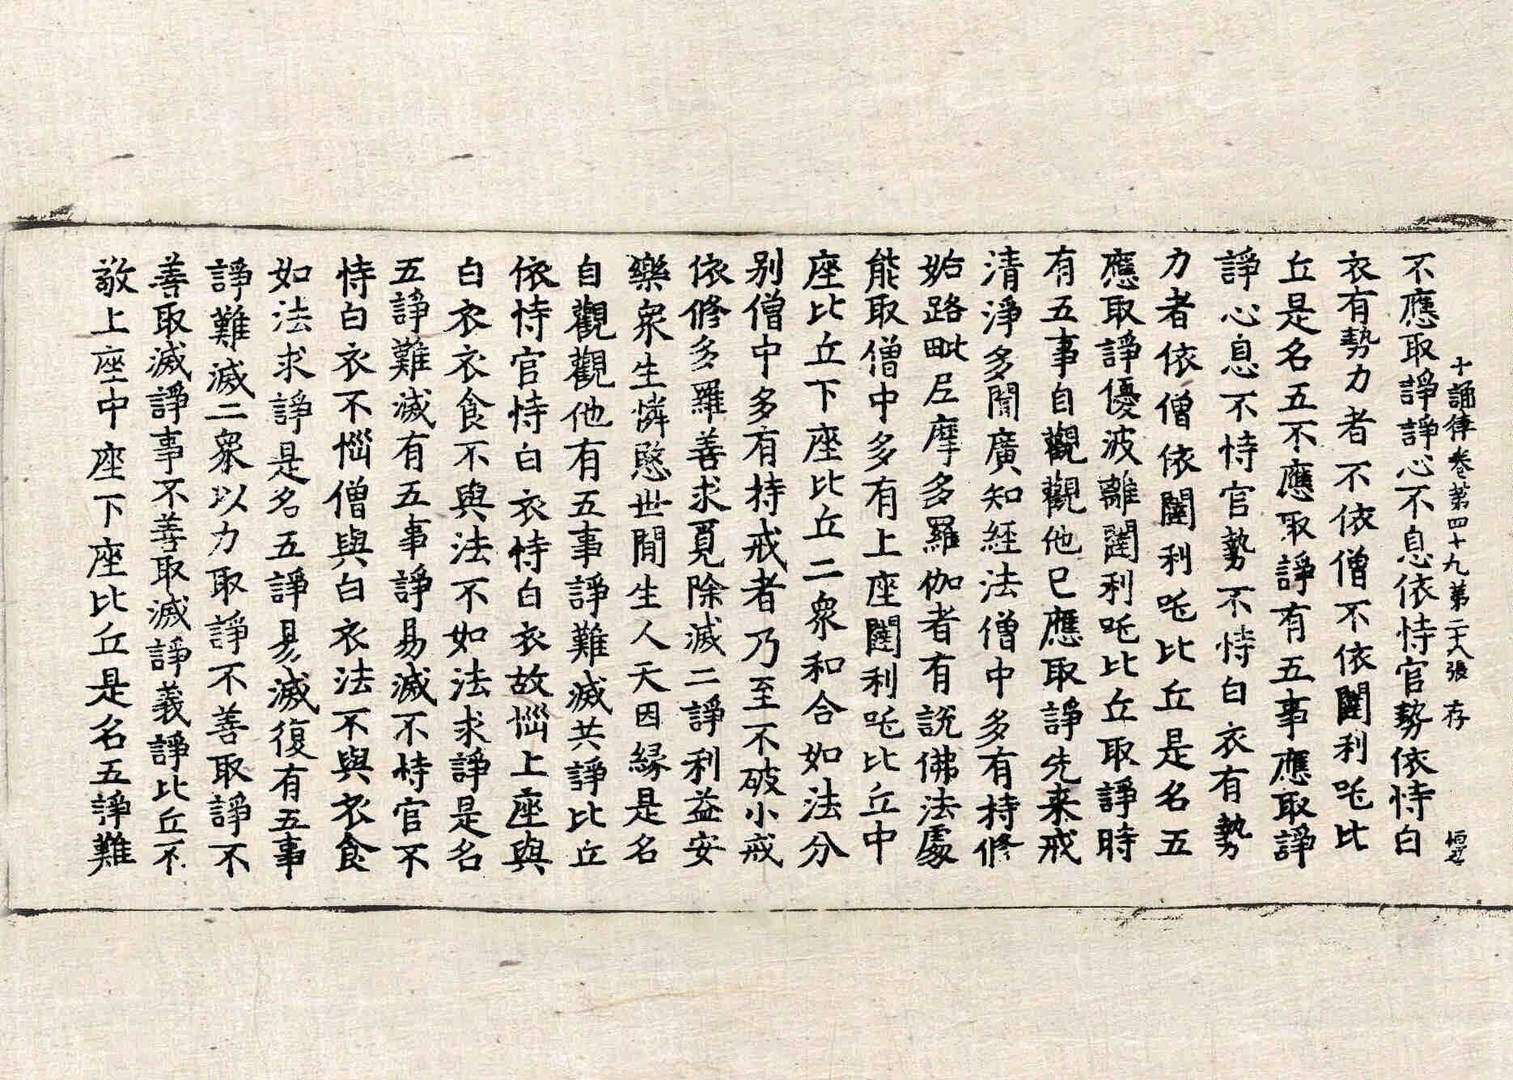 十誦律卷第四十九第二十八張 存
不應取諍諍心不息依恃官勢依恃白
衣有勢力者不依僧不依闥利吒比
丘是名五不應取諍有五事應取諍
諍心息不恃官勢不恃白衣有勢
力者依僧依闥利吒比丘是名五
應取諍優波離闥利吒比丘取諍時
有五事自觀觀他已應取諍先来戒
清淨多聞廣知經法僧中多有持修
妬路毗尼摩多羅伽者有說佛法處
能取僧中多有上座闥利吒比丘中
座比丘下座比丘二衆和合如法分
別僧中多有持戒者乃至不破小戒
依修多羅善求覓除滅二諍利益安
樂衆生憐愍世間生人天因緣是名
自觀觀他有五事諍難滅共諍比丘
依恃官恃白衣恃白衣故惱上座與
白衣衣食不與法不如法求諍是名
五諍難滅有五事諍易滅不恃官不
恃白衣不惱僧與白衣法不與衣食
如法求諍是名五諍易滅復有五事
諍難滅二衆以力取諍不善取諍不
善取滅諍事不善取滅諍義諍比丘不
敬上座中座下座比丘是名五諍難